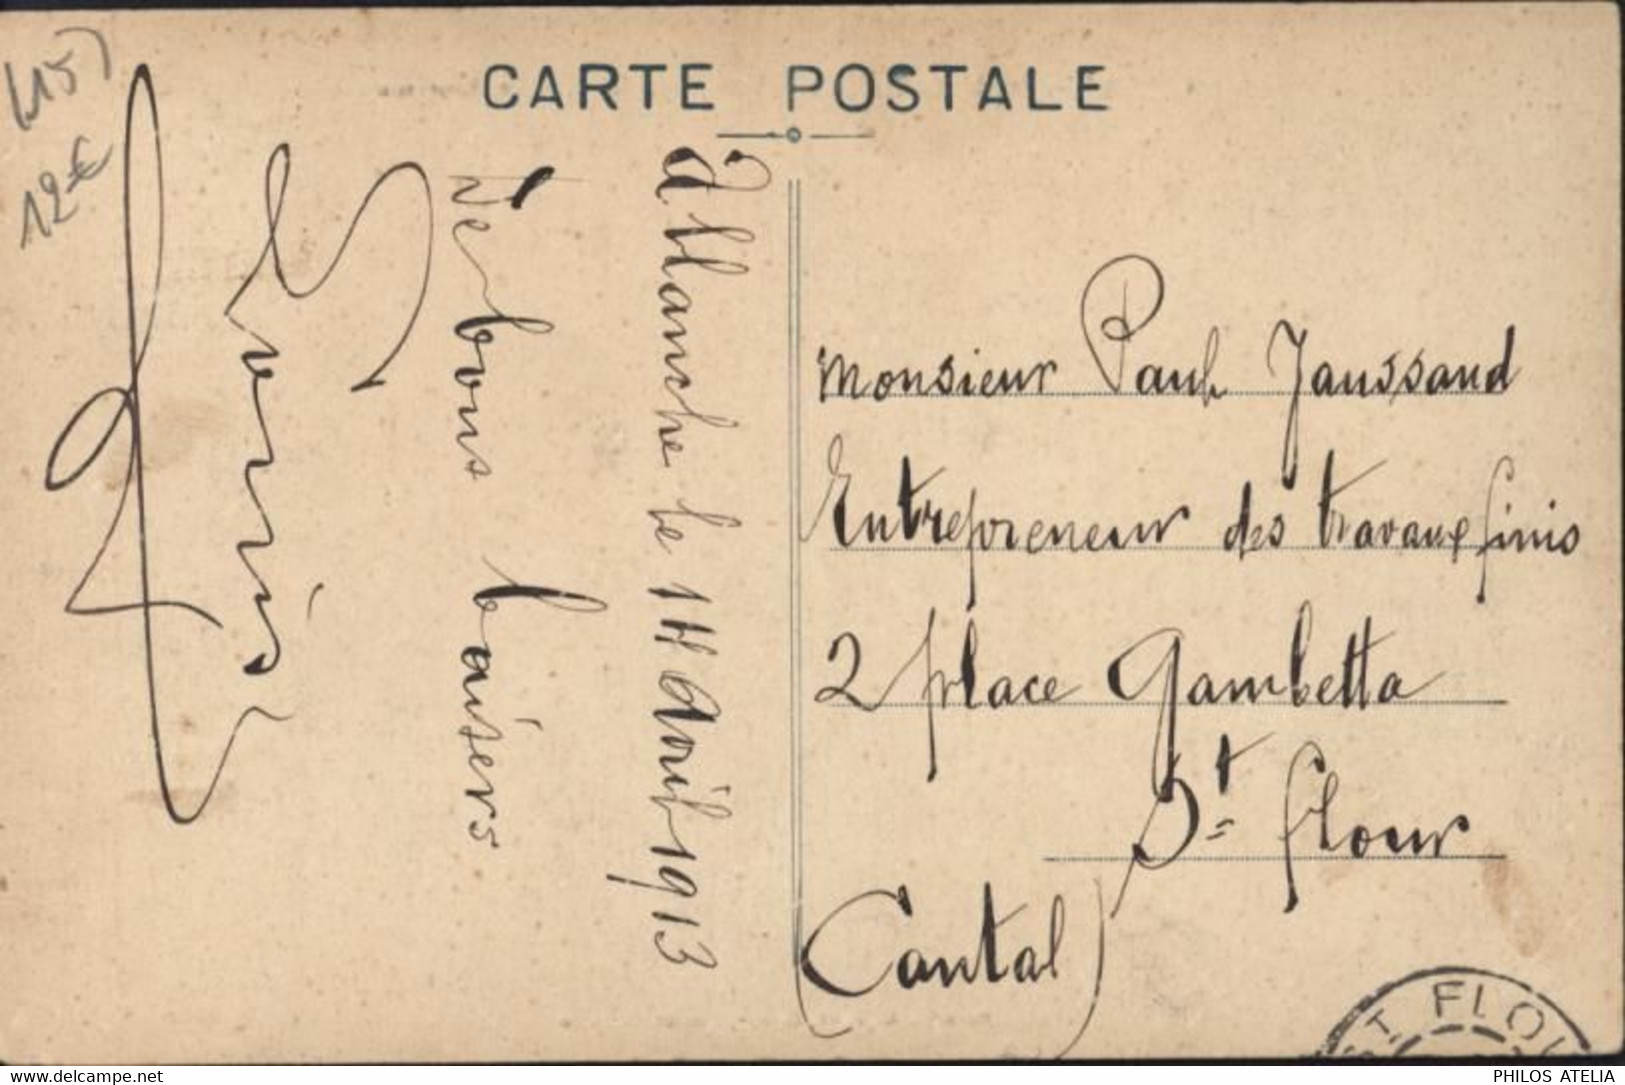 (15)
12€
CARTE POSTALE
Allanche le 14 Avril 1913
De bons baisers
Monsieur Paul Jaussaud
Entrepreneur des travaux finis
2 place Gambetta
St flour
(Cantal)
ST FLOU
www.delcampe.net
PHILOS ATELIA